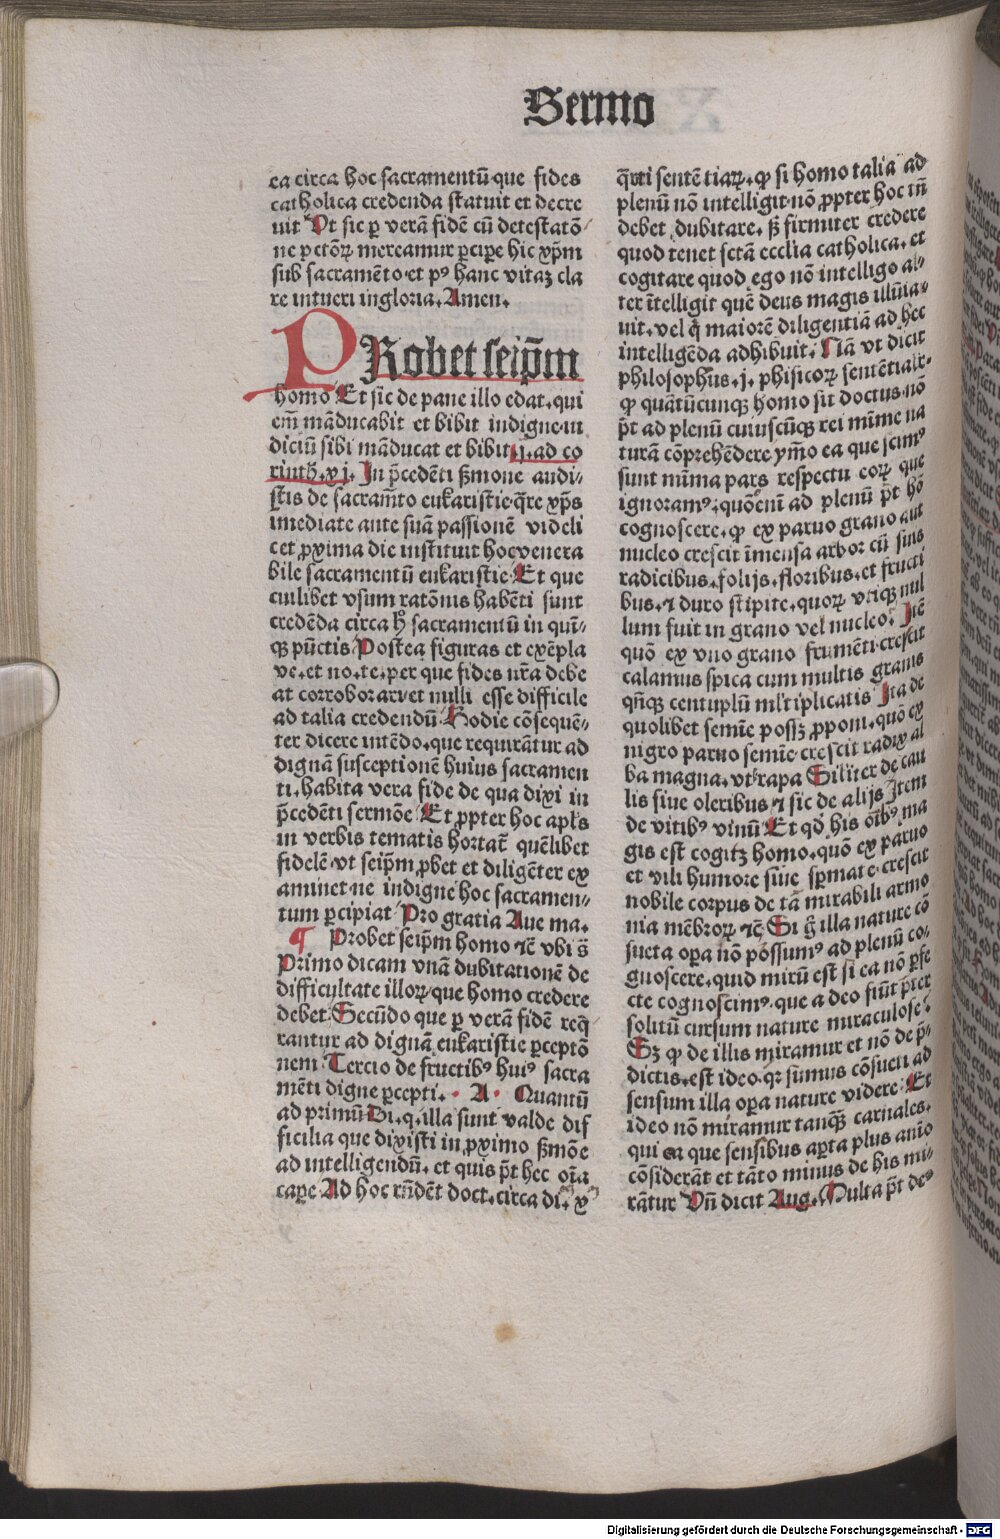 Sermo
ea circa hoc sacramentū que fides
catholica credenda statuit et decre
uit Vt sic ꝑ verā fidē cū detestatō
ne pctōꝝ mereamur ꝑcipe hic xp̄m
sub sacramēto et pꝰ hanc vitaꝫ cla
re intueri in gloria. Amen.
PRobet seip̄m
homo Et sic de pane illo edat. qui
em̄ māducabit et bibit indigne iu
diciū sibi māducat et bibit j. ad co
rinth. xj. In p̄cedēti ßmone audi-
stis de sacram̄to eukaristie q̄re xp̄s
imediate ante suā passionē videli
cet ꝓxima die instituit hoc venera
bile sacramentū eukaristie Et que
cuilibet vsum ratōnis habēti sunt
credēda circa hͦ sacramentū in quī-
qꝫ pūctis Postea figuras et exēpla
ve. et no. te. per que fides nr̄a debe
at corroborari et nulli esse difficile
ad talia credendū Hodie cōsequē-
ter dicere intēdo. que requirātur ad
dignā susceptionē huius sacramen
ti. habita vera fide de qua dixi in
p̄cedēti sermōe Et ꝓpter hoc apl̄s
in verbis tematis hortat̄ quēlibet
fidelē vt seip̄m ꝓbet et diligēter ex
aminet ne indigne hoc sacramen-
tum ꝑcipiat Pro gratia Aue ma.
¶ Probet seip̄m homo ⁊c̄ vbi s̄
Primo dicam vnā dubitationē de
difficultate illoꝝ que homo credere
debet Secūdo que ꝑ verā fidē req̄
rantur ad dignā eukaristie ꝑceptō
nem Tercio de fructibꝰ huiꝰ sacra
mēti digne ꝑcepti. · A · Quantū
ad primū Di. q. illa sunt valde dif
ficilia que dixisti in ꝓximo ßmōe
ad intelligendū. et quis p̄t hec oīa
caꝑe Ad hoc rn̄dēt doct. circa di. x
q̄rti sentētiaꝝ. ꝙ si homo talia ad
plenū nō intelligit nō ꝓpter hoc in̄
debet dubitare. ß firmiter credere
quod tenet sctā ecclīa catholica. et
cogitare quod ego nō intelligo al-
ter ītelligit quē deus magis illūia-
uit. vel q̄ maiorē diligentiā ad hec
intelligēda adhibuit. Nā vt dicit
philosophꝰs. j. phisicoꝝ sententialr̄
ꝙ quātūcunqꝫ homo sit doctus nō
p̄t ad plenū cuiuscūqꝫ rei mīme na
turā cōprehēdere ymo ea que scimꝰ
sunt mīma pars respectu eoꝝ que
ignoramꝰ. quō enī ad plenū p̄t hō
cognoscere. ꝙ ex paruo grano aut
nucleo crescit īmensa arbor cū suis
radicibus. folijs. floribus. et fructi
bus. ⁊ duro stipite. quoꝝ vtiqꝫ nul
lum fuit in grano vel nucleo. Itē
quō ex vno grano frumēti crescit
calamus spica cum multis granis
qn̄qꝫ centuplū ml̓tiplicatis Ita de
quolibet semīe possꝫ ꝓponi. quō ex
nigro paruo semīe crescit radix al
ba magna. vt rapa Sīliter de cau
lis siue oleribus ⁊ sic de alijs Item
de vitibꝰ vinū Et qd̓ his oībꝰ ma
gis est cogitꝫ homo. quō ex paruo
et vili humore siue sꝑmate crescit
nobile corpus de tā mirabili armo
nia mēbroꝝ ⁊c̄ Si g̊ illa nature cō
sueta oꝑa nō possumꝰ ad plenū co-
gnoscere. quid mirū est si ea nō ꝑfe
cte cognoscimꝰ. que a deo fiūt p̄ter
solitū cursum nature miraculose.
Sꝫ ꝙ de illis miramur et nō de p̄-
dictis. est ideo. qꝛ sumus cōsueti ad
sensum illa oꝑa nature videre Et
ideo nō miramur tanqꝫ carnales.
qui ea que sensibus aꝑta plus anīo
cōsiderāt et tāto minus de his mi-
rātur Vn̄ dicit Aug. Multa p̄t deꝰ
Digitalisierung gefördert durch die Deutsche Forschungsgemeinschaft - DFG